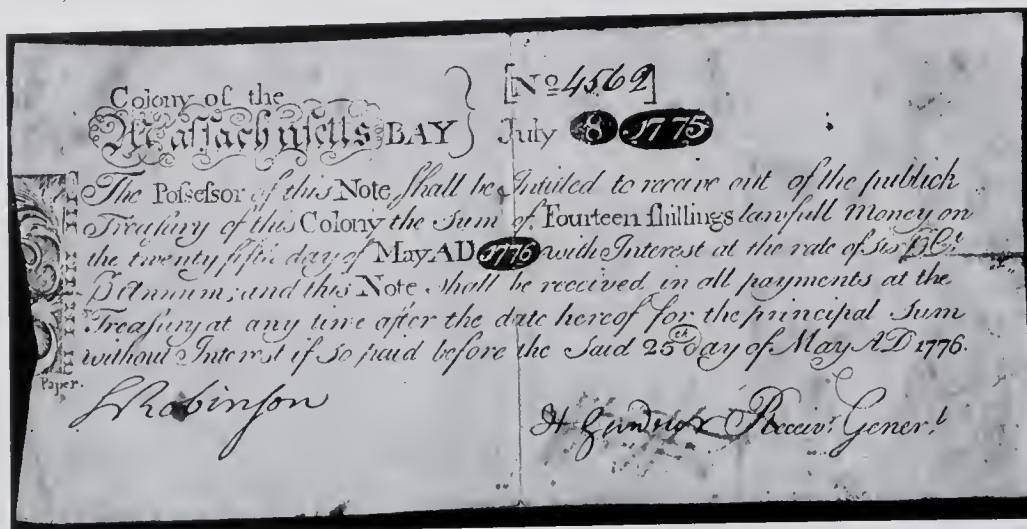 Colony of the
Massachusetts BAY
[No 4562]
July 8 1775
The Possessor of this Note shall be Intitled to receive out of the publick
Treasury of this Colony the Sum of Fourteen shillings lawfull Money on
the twenty fifth day of May AD 1776 with Interest at the rate of six PCt
P Annum; and this Note shall be received in all payments at the
Treasury at any time after the date hereof for the principal Sum
without Interest if so paid before the Said 25th day of May AD 1776.
Paper.
Robinson
H Receivr. Generl.